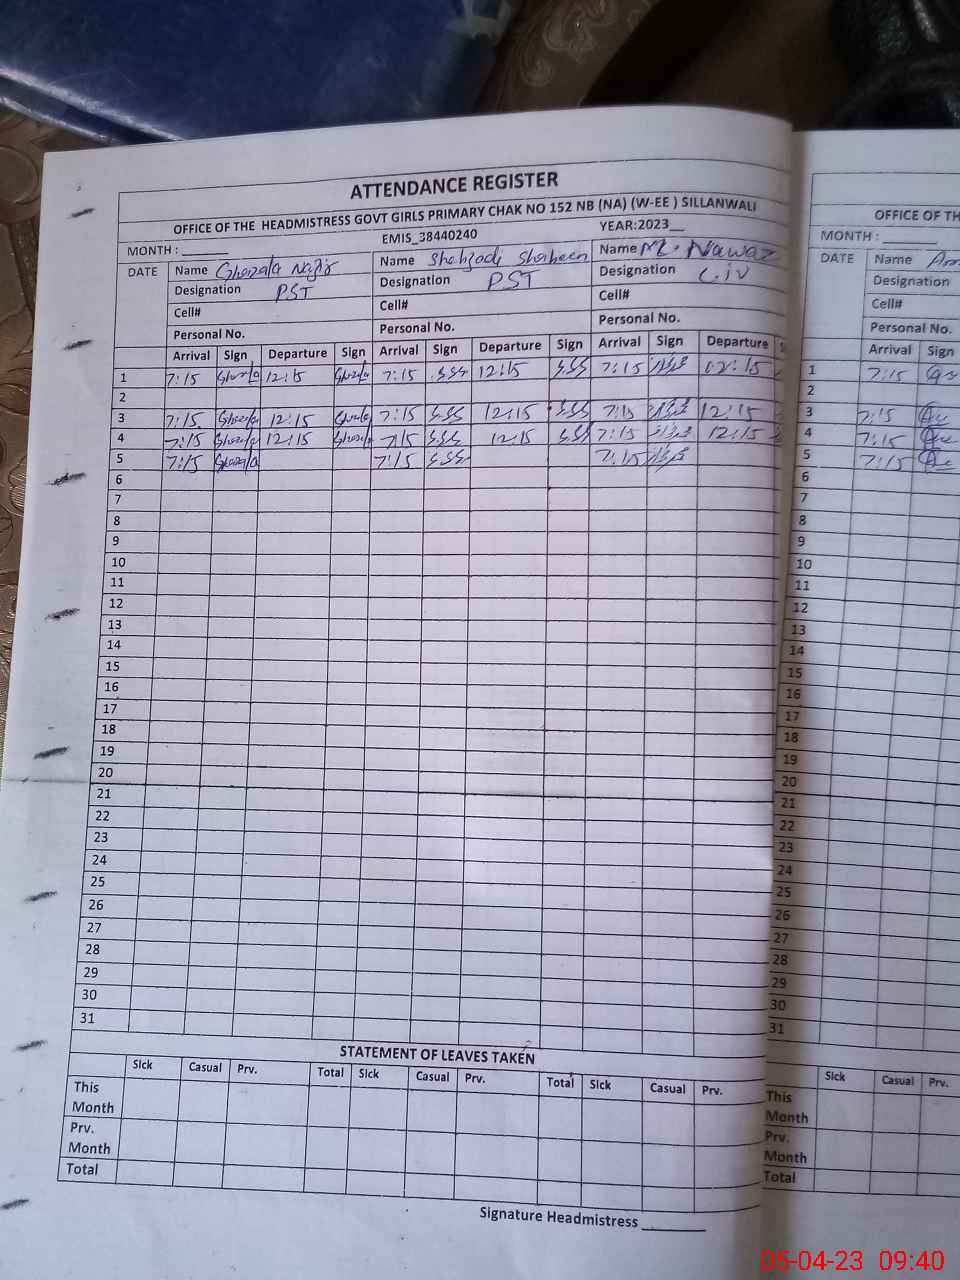 ATTENDANCE REGISTER
OFFICE OF THE HEADMISTRESS GOVT GIRLS PRIMARY CHAK NO 152 NB (NA) (W-EE ) SILLANWALI
MONTH : ______ EMIS_38440240 YEAR:2023__
DATE Name Ghazala Nazir Name Shahzadi Shaheen Name M. Nawaz
Designation PST Designation PST Designation C.iV
Cell# Cell# Cell#
Personal No. Personal No. Personal No.
Arrival Sign Departure Sign Arrival Sign Departure Sign Arrival Sign Departure S
1 7:15 Ghazala 12:15 Ghazala 7:15 S.S.S 12:15 S.S.S 7:15 02:15
2
3 7:15. Ghazala 12:15 Ghazala 7:15 S.S.S 12:15 S.S.S 7:15 12:15
4 7:15 Ghazala 12:15 Ghazala 7:15 S.S.S 12:15 S.S.S 7:15 12:15
5 7:15 Ghazala 7:15 S.S.S 7:15
6
7
8
9
10
11
12
13
14
15
16
17
18
19
20
21
22
23
24
25
26
27
28
29
30
31
STATEMENT OF LEAVES TAKEN
Sick Casual Prv. Total Sick Casual Prv. Total Sick Casual Prv.
This Month
Prv. Month
Total
Signature Headmistress ______
OFFICE OF TH
MONTH : ______
DATE Name
Designation
Cell#
Personal No.
Arrival Sign
1 7:15
2
3 7:15
4 7:15
5 7:15
6
7
8
9
10
11
12
13
14
15
16
17
18
19
20
21
22
23
24
25
26
27
28
29
30
31
Sick Casual Prv.
This Month
Prv. Month
Total
05-04-23 09:40